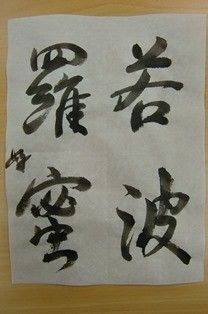 若波
羅蜜